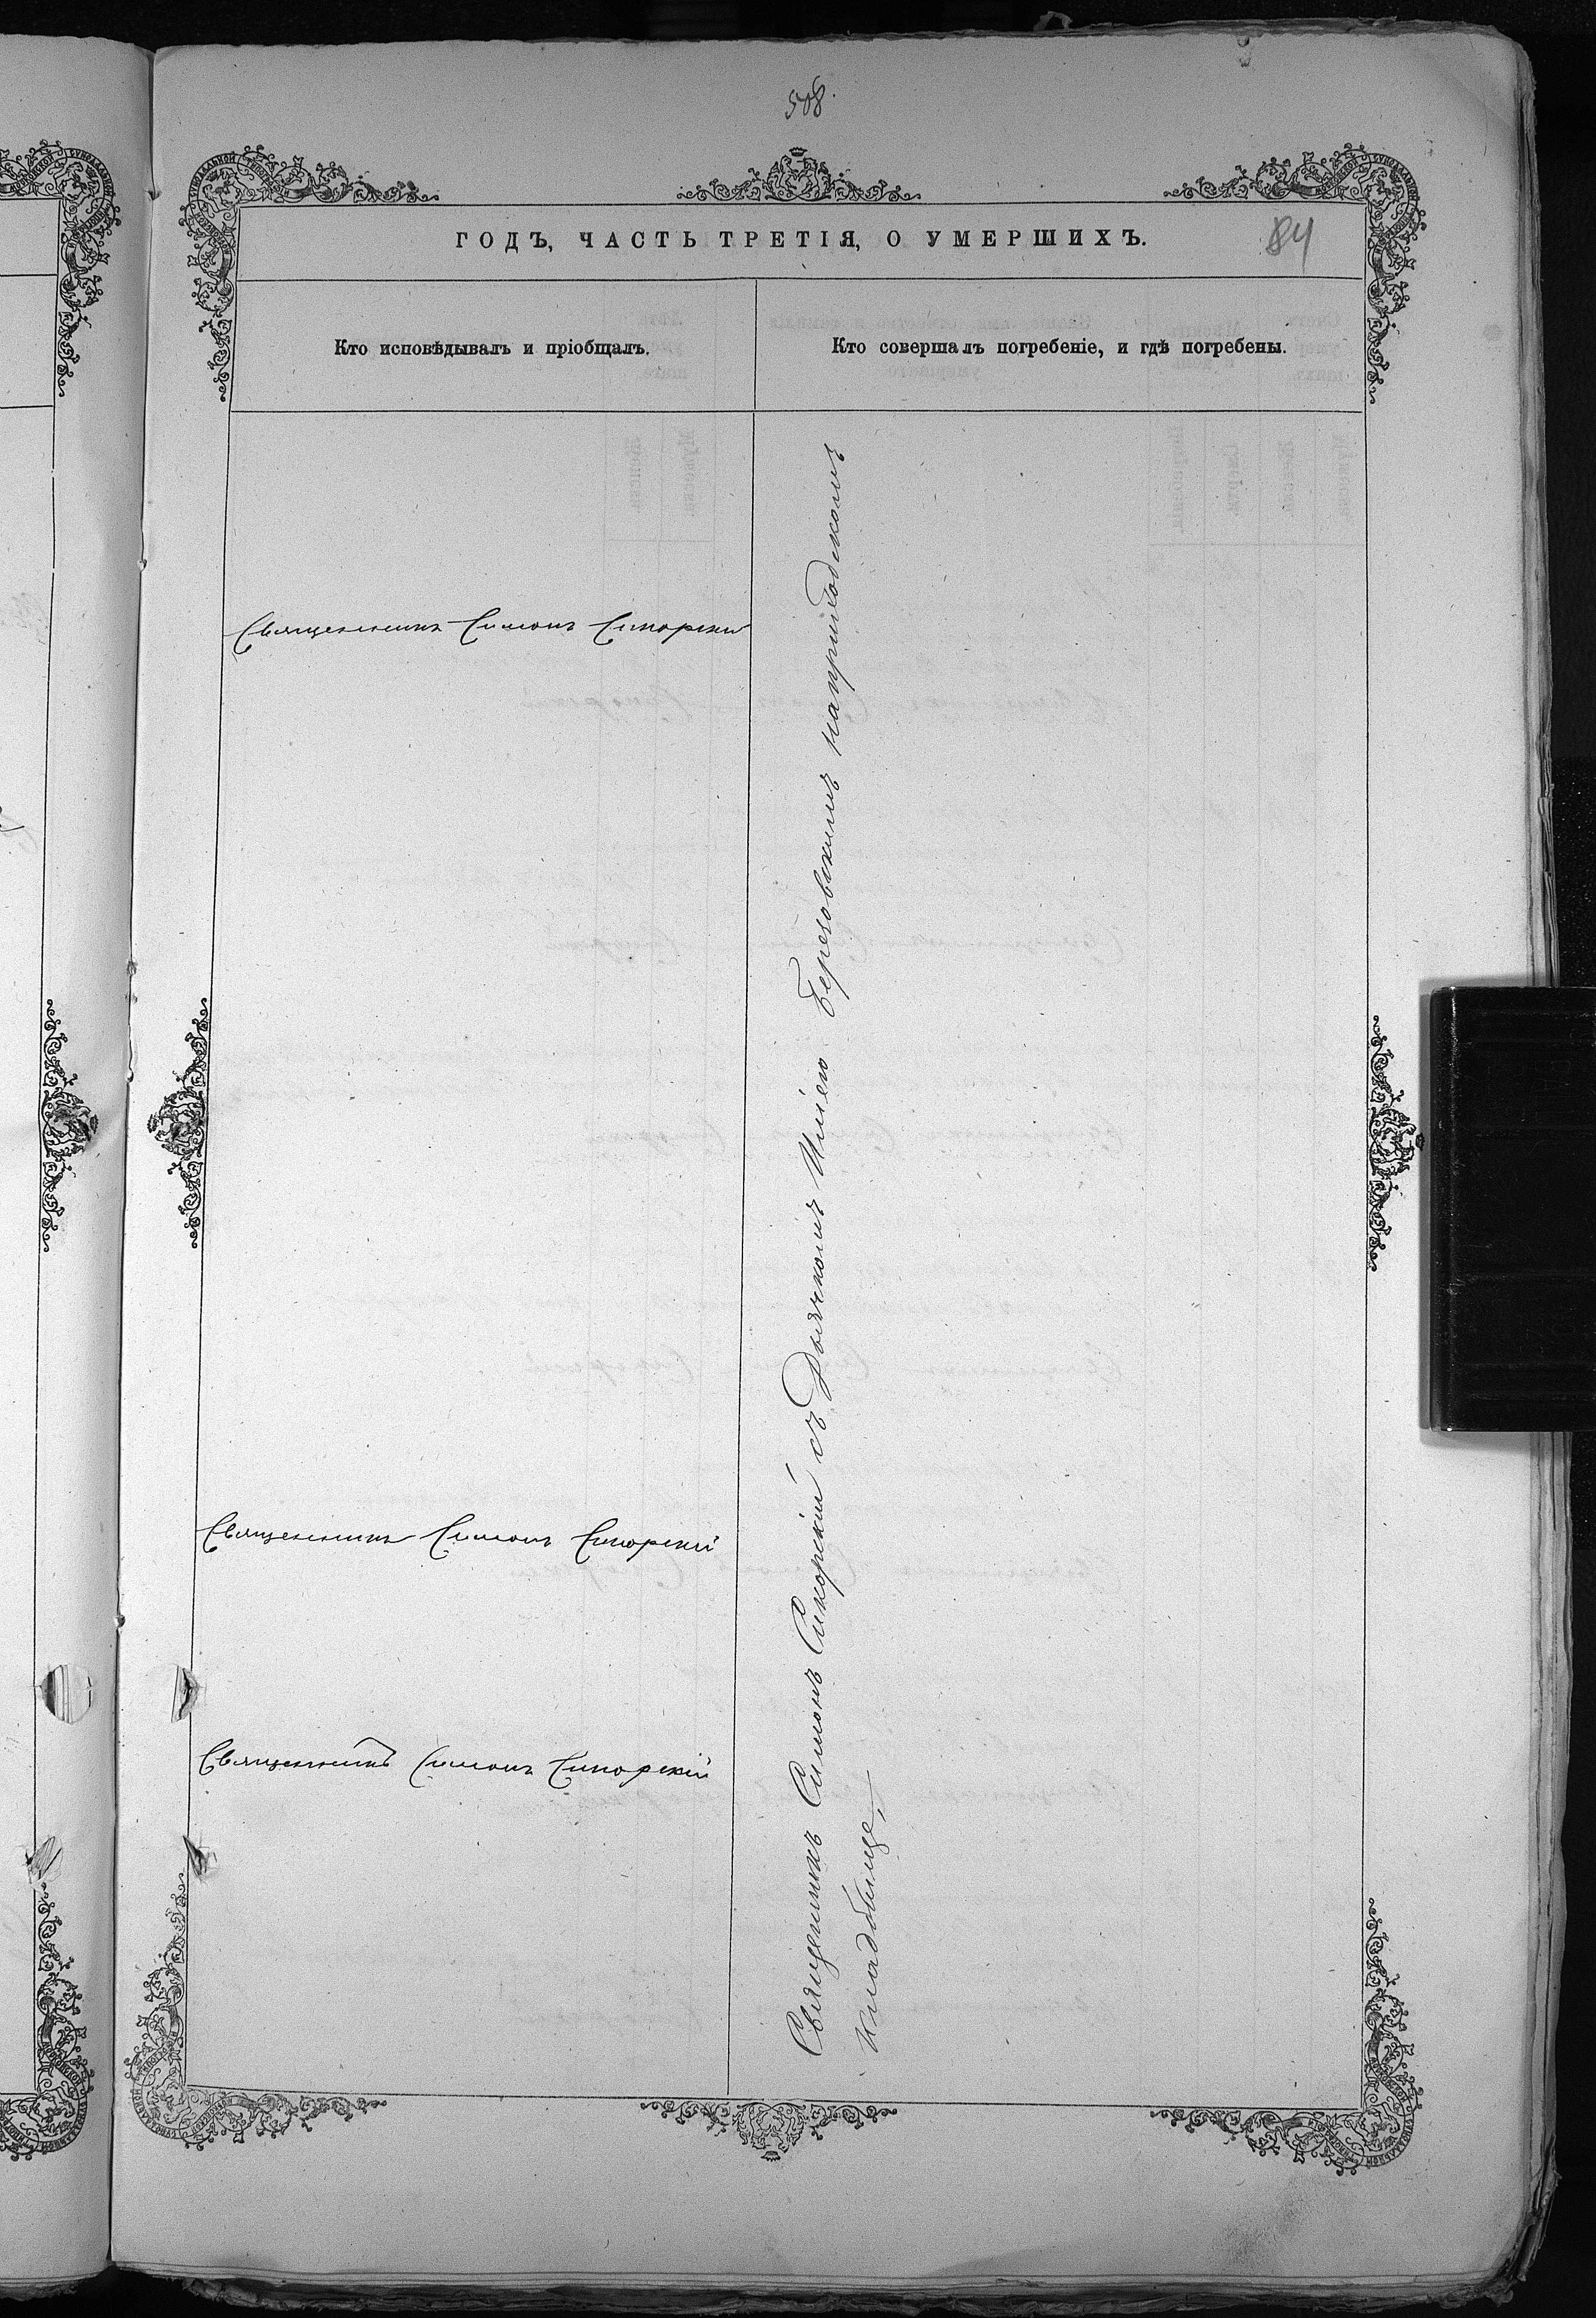 508
ГОДЪ, ЧАСТЬ ТРЕТІЯ, О УМЕРШИХЪ.
84
Кто исповѣдывалъ и пріобщалъ.
Кто совершалъ погребеніе, и гдѣ погребены.
Священникъ Симонъ Сикорски
Священникъ Симонъ Сикорскій
Священникъ Симонъ Сикорскій
Священникъ Симонъ Сикорскій съ Дьячкомъ Иліею Березовскимъ на приходскомъ
кладбище,